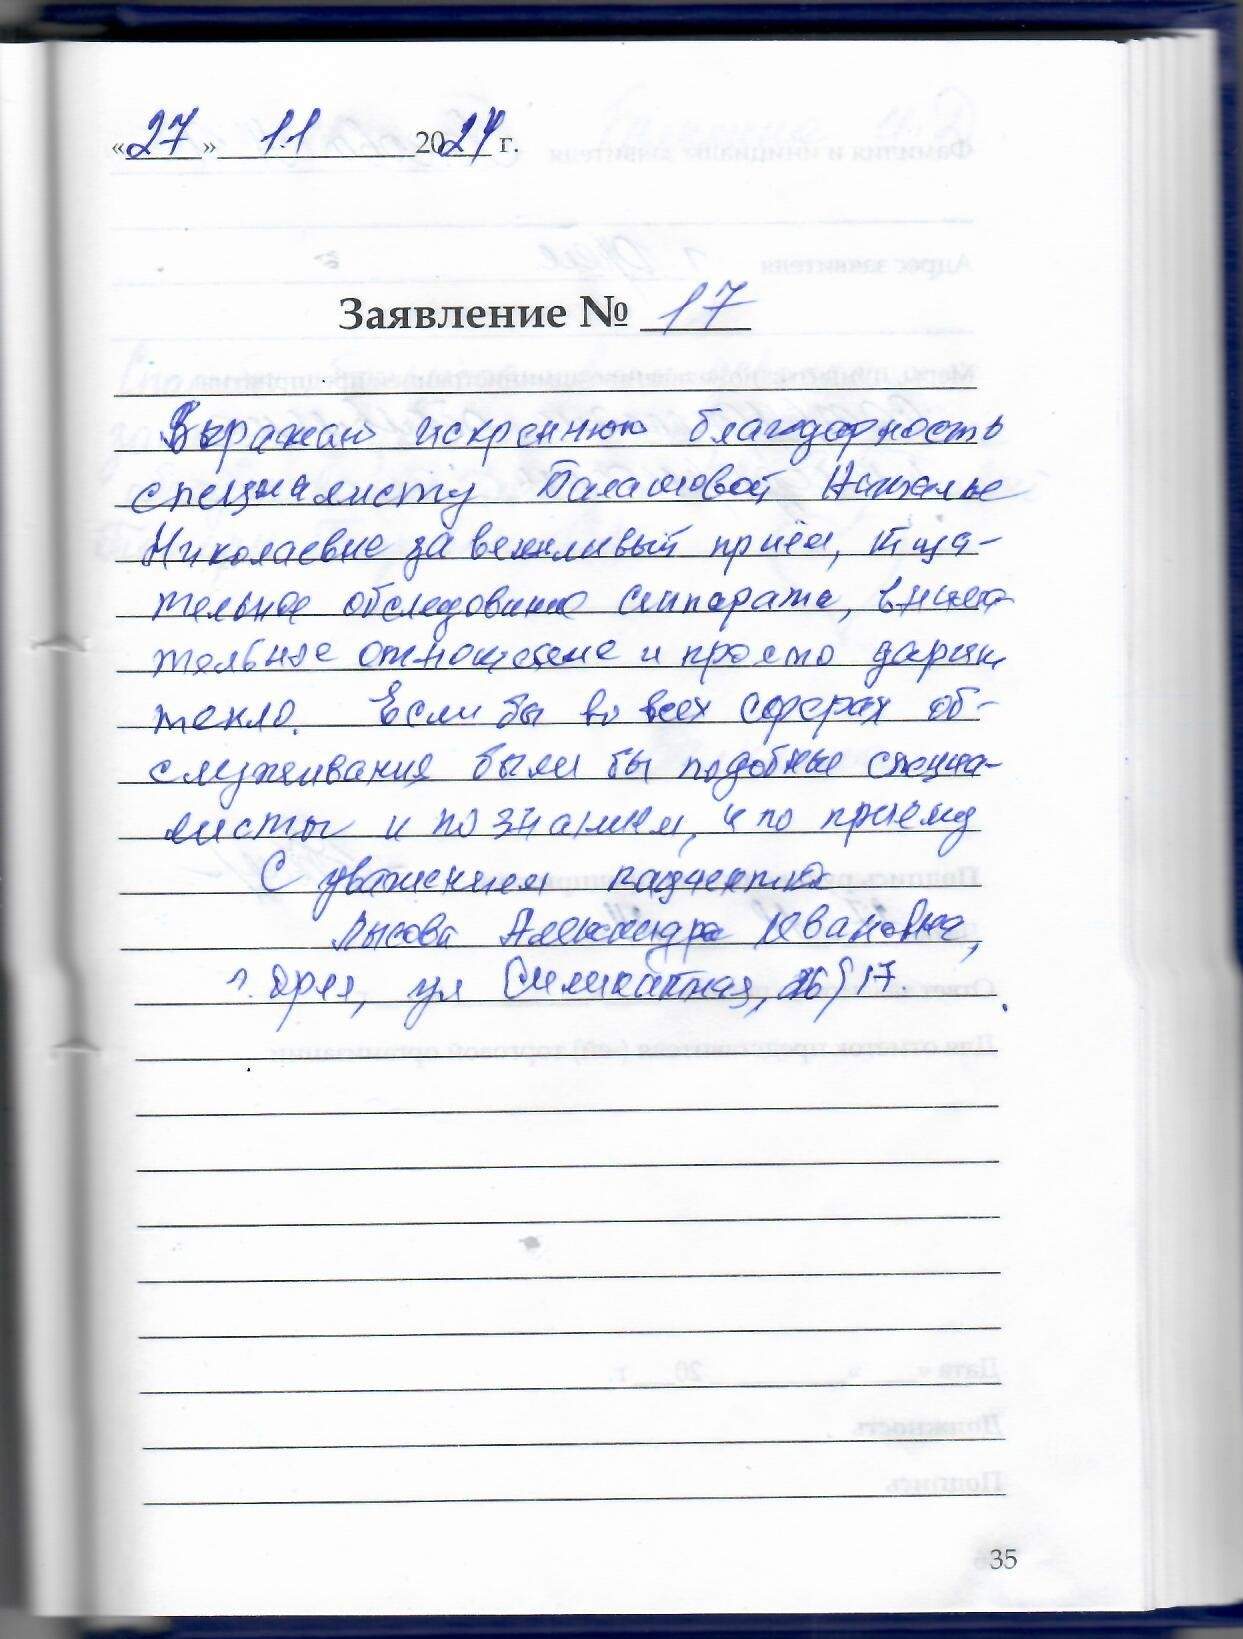 «27» 11 2024 г.
Заявление № 17
Выражаю искреннюю благодарность
специалисту Балашовой Наталье
Николаевне за вежливый приём, тща-
тельное обследование аппарата, внима-
тельное отношение и просто дарит
тепло. Если бы во всех сферах об-
служивания были бы подобные специа-
листы и по знаниям, и по приему
С уважением пациентка
Лысова Александра Ивановна,
г. Орел, ул Силикатная, 26/17.
35